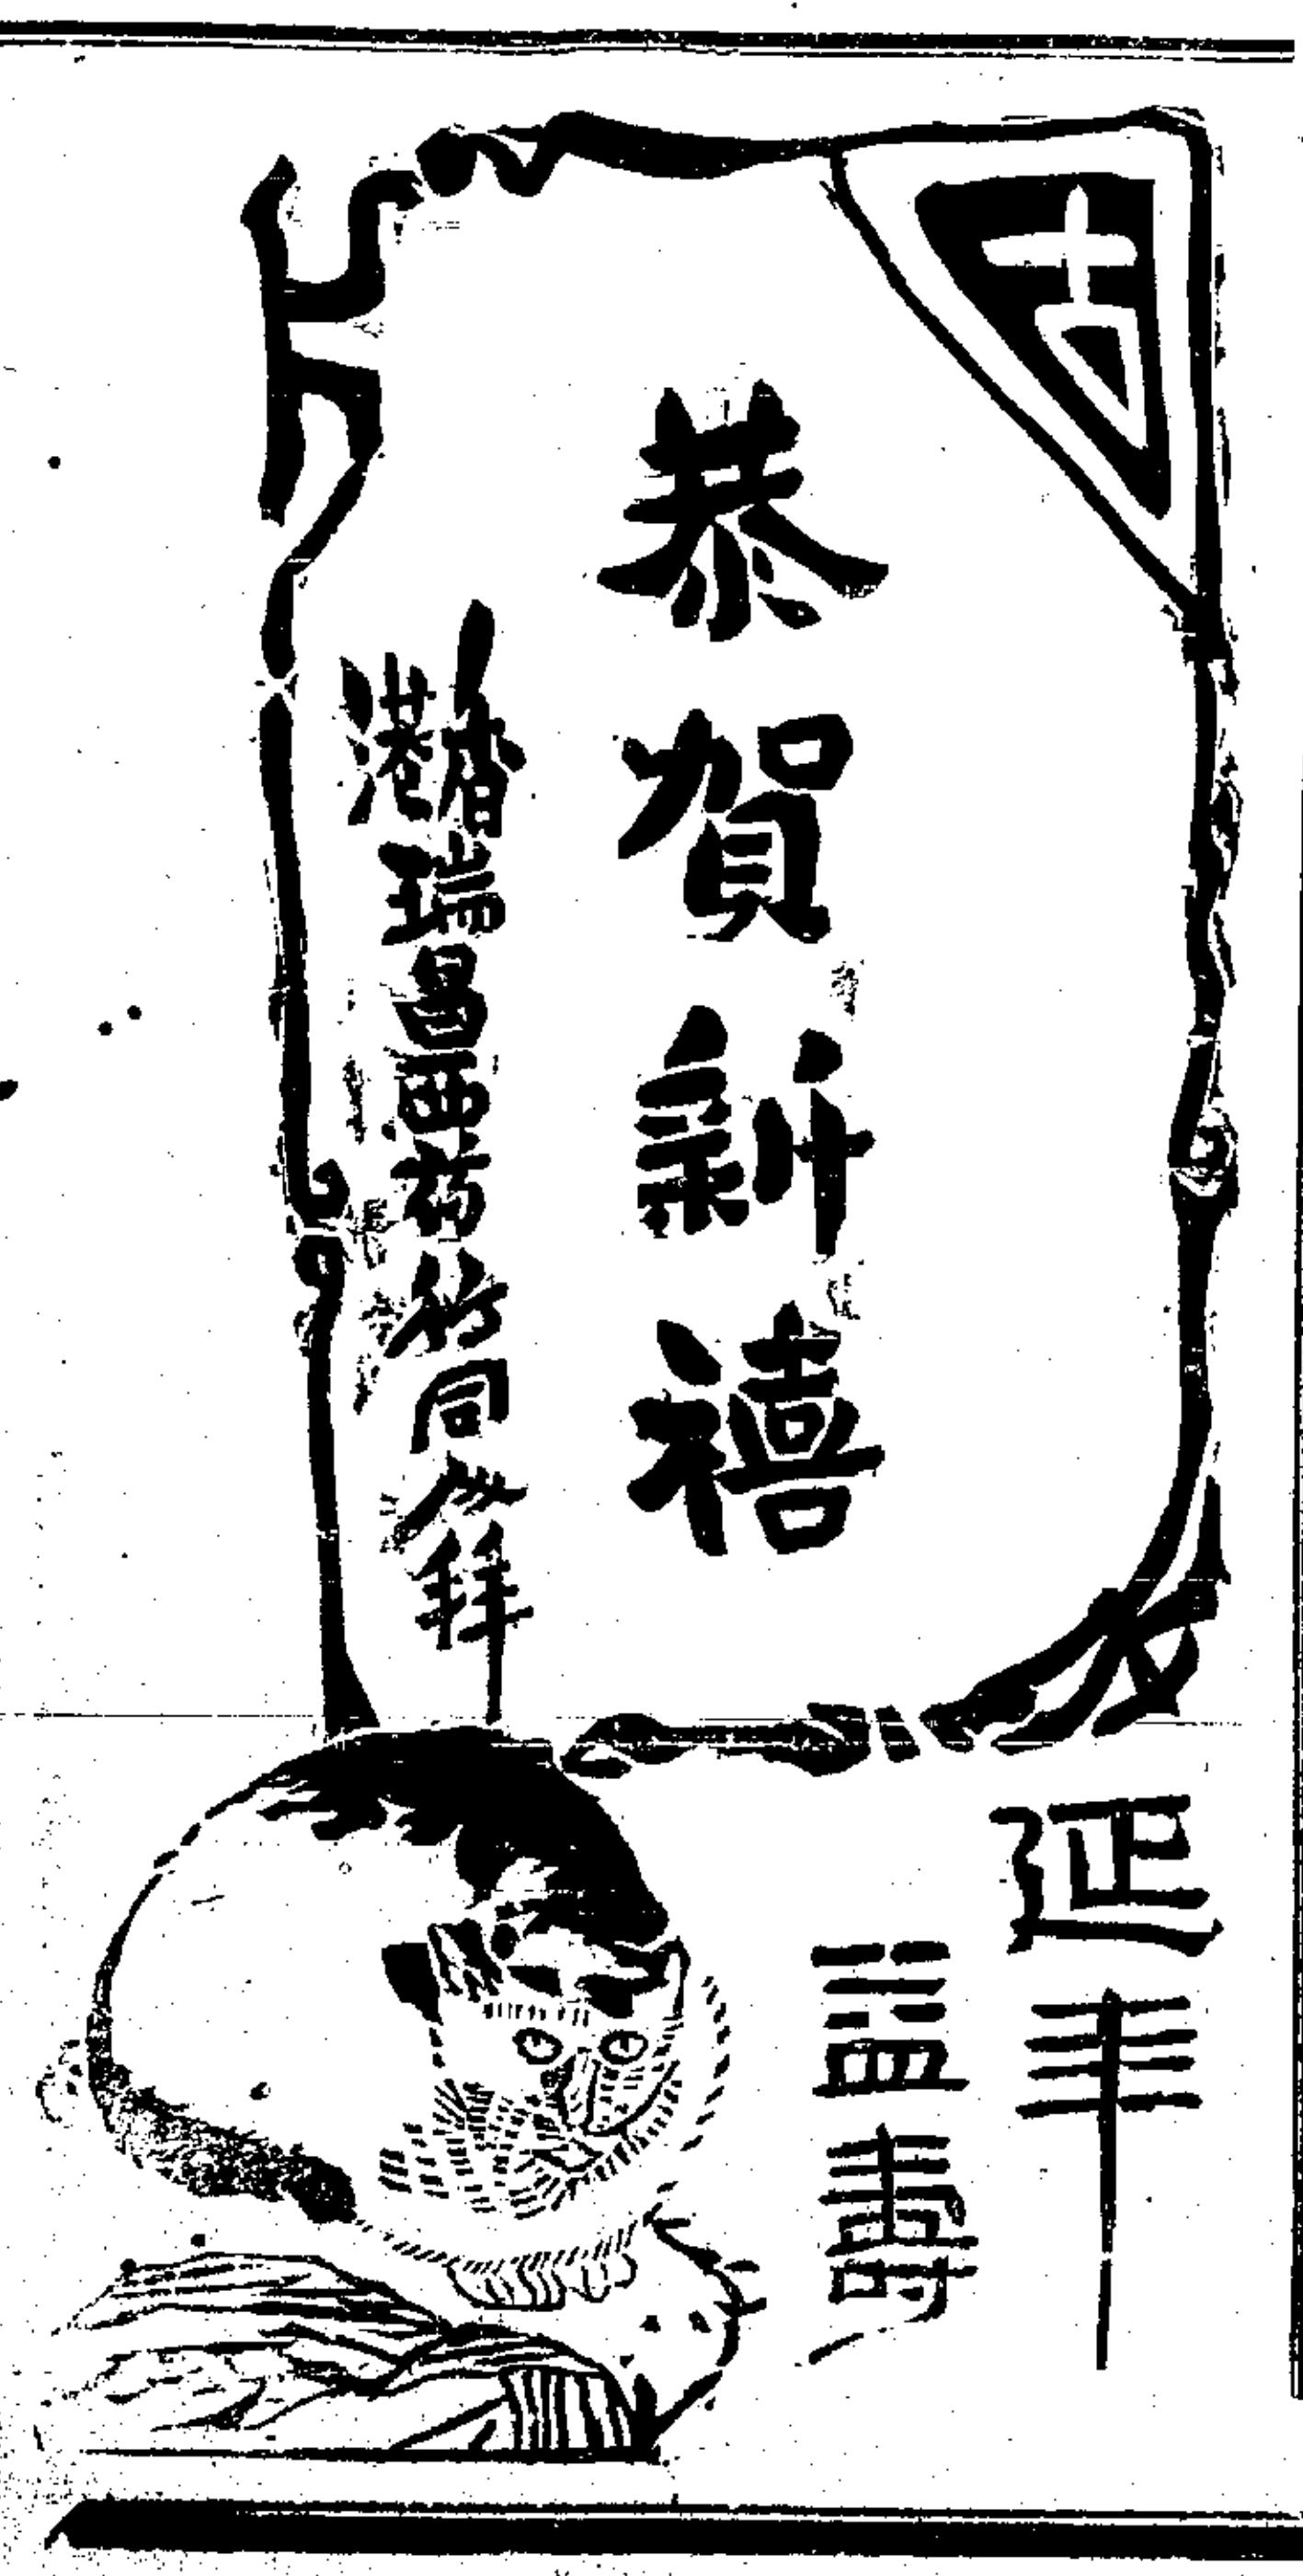 吉
恭賀新禧
香港瑞昌西葯行同人拜
延年
益壽